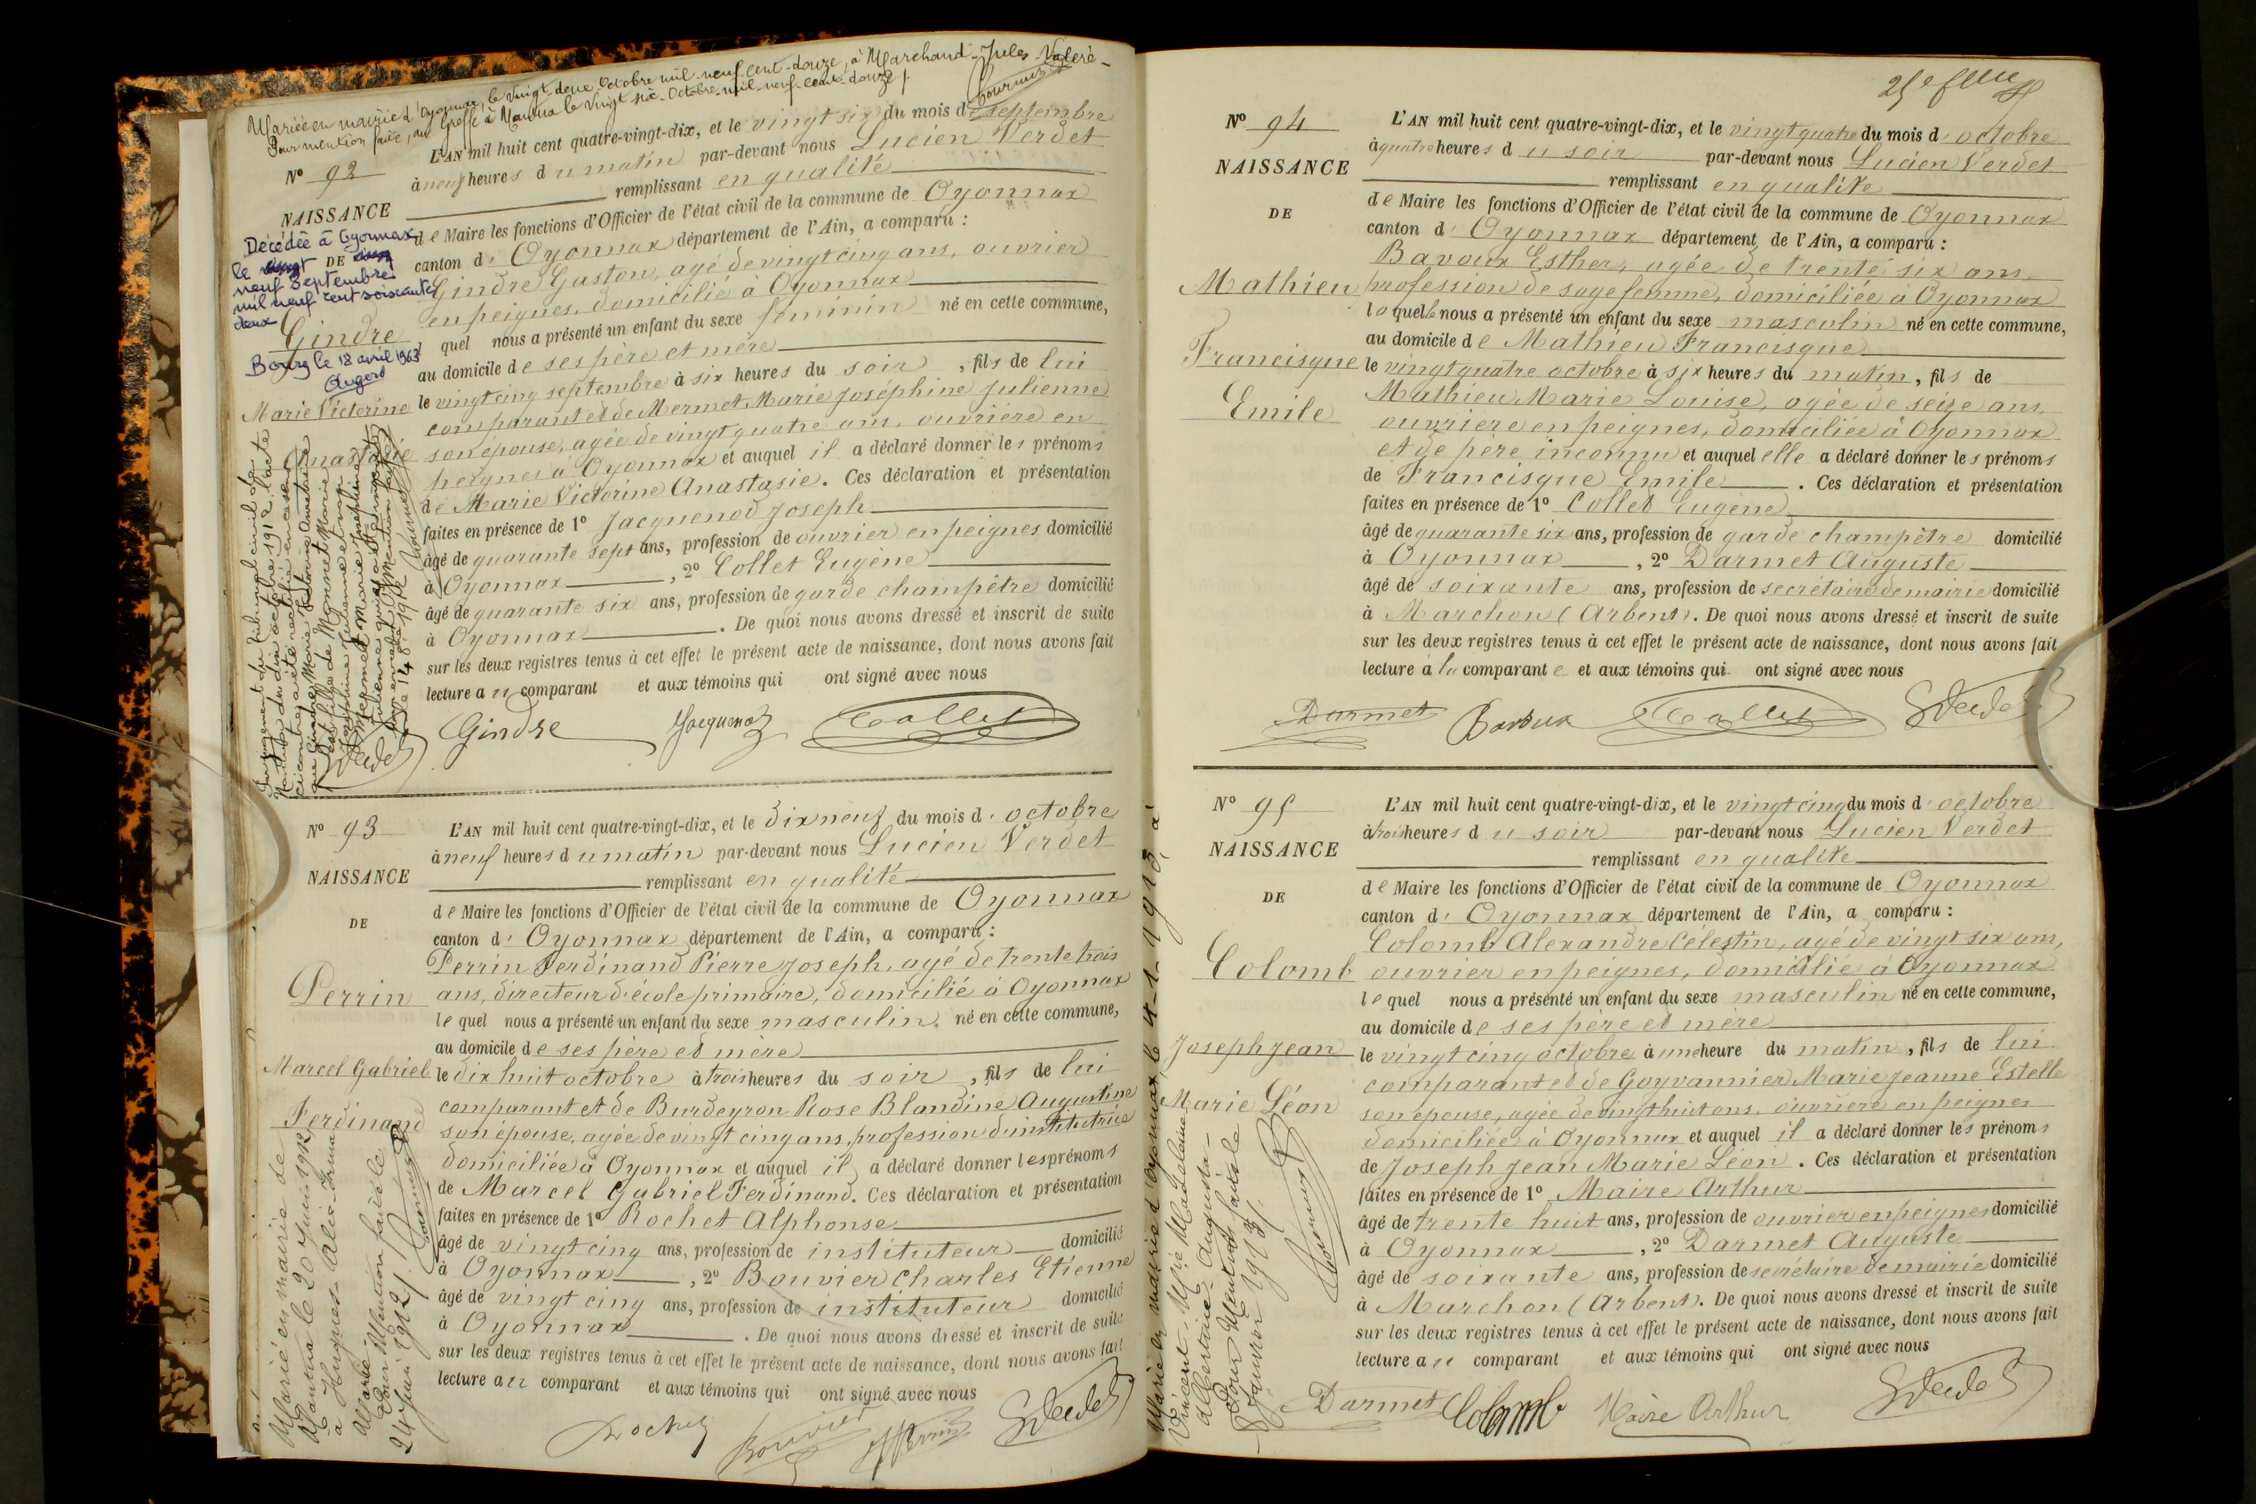 Mariée en mairie d'Oyonnax, le vingt deux Octobre mil neuf cent douze, à Marchand Jules Valéré
Pour mention faite, au Greffe à Nantua le vingt six Octobre mil neuf cent douze
Nº 92
NAISSANCE
DE
Décédée à Oyonnax
le
neuf Septembre
mil neuf cent soixante
deux
Gindre
Bourg le 18 avril 1963
Marie Victorine
Anastasie
L'AN mil huit cent quatre-vingt-dix, et le vingt six du mois de septembre
à neuf heures du matin par-devant nous Lucien Verdet
remplissant en qualité
de Maire les fonctions d'Officier de l'état civil de la commune de Oyonnax
canton d'Oyonnax département de l'Ain, a comparu :
Gindre Gaston, agé de vingt cinq ans, ouvrier
en peignes, domicilié à Oyonnax
quel nous a présenté un enfant du sexe féminin né en cette commune,
au domicile de ses père et mère
le vingt cinq septembre à six heures du soir, fils de lui
comparant et de Mermet Marie Joséphine Julienne
son épouse, agée de vingt quatre ans, ouvrière en
peignes à Oyonnax et auquel il a déclaré donner les prénoms
de Marie Victorine Anastasie. Ces déclaration et présentation
faites en présence de 1º Jacquenod Joseph
âgé de quarante sept ans, profession de ouvrier en peignes domicilié
à Oyonnax, 2º Collet Eugène
âgé de quarante six ans, profession de garde champêtre domicilié
à Oyonnax. De quoi nous avons dressé et inscrit de suite
sur les deux registres tenus à cet effet le présent acte de naissance, dont nous avons fait
lecture au comparant et aux témoins qui ont signé avec nous
Gindre Jacquenod Collet
Verdet
Nº 93
NAISSANCE
DE
Perrin
Marcel Gabriel
Ferdinand
Marié en mairie de
Nantua le 20 Juin 1912
à Hugues Alice
Marie
Pour Mention faite le
24 Juin 1912
L'AN mil huit cent quatre-vingt-dix, et le dix neuf du mois d'octobre
à neuf heures du matin par-devant nous Lucien Verdet
remplissant en qualité
de Maire les fonctions d'Officier de l'état civil de la commune de Oyonnax
canton d'Oyonnax département de l'Ain, a comparu :
Perrin Ferdinand Pierre Joseph, agé de trente trois
ans, directeur d'école primaire, domicilié à Oyonnax
le quel nous a présenté un enfant du sexe masculin, né en cette commune,
au domicile de ses père et mère
le dix huit octobre à trois heures du soir, fils de lui
comparant et de Burdeyron Rose Blandine Augustine
son épouse, agée de vingt cinq ans, profession d'institutrice
domiciliée à Oyonnax et auquel il a déclaré donner les prénoms
de Marcel Gabriel Ferdinand. Ces déclaration et présentation
faites en présence de 1º Rochet Alphonse
âgé de vingt cinq ans, profession de instituteur domicilié
à Oyonnax, 2º Bouvier Charles Etienne
âgé de vingt cinq ans, profession de instituteur domicilié
à Oyonnax. De quoi nous avons dressé et inscrit de suite
sur les deux registres tenus à cet effet le présent acte de naissance, dont nous avons fait
lecture au comparant et aux témoins qui ont signé avec nous
Rochet Bouvier Perrin Verdet
25e feuille
Nº 94
NAISSANCE
DE
Mathieu
Francisque
Emile
L'AN mil huit cent quatre-vingt-dix, et le vingt quatre du mois d'octobre
à quatre heures du soir par-devant nous Lucien Verdet
remplissant en qualité
de Maire les fonctions d'Officier de l'état civil de la commune de Oyonnax
canton d'Oyonnax département de l'Ain, a comparu :
Bavoux Esther, agée de trente six ans,
profession de sage femme, domiciliée à Oyonnax
laquelle nous a présenté un enfant du sexe masculin né en cette commune,
au domicile de Mathieu Francisque
le vingt quatre octobre à six heures du matin, fils de
Mathieu Marie Louise, agée de seize ans,
ouvrière en peignes, domiciliée à Oyonnax
et de père inconnu et auquel elle a déclaré donner les prénoms
de Francisque Emile. Ces déclaration et présentation
faites en présence de 1º Collet Eugène
âgé de quarante six ans, profession de garde champêtre domicilié
à Oyonnax, 2º Darmet Auguste
âgé de soixante ans, profession de secrétaire de mairie domicilié
à Marchon (Arbent). De quoi nous avons dressé et inscrit de suite
sur les deux registres tenus à cet effet le présent acte de naissance, dont nous avons fait
lecture à la comparante et aux témoins qui ont signé avec nous
Darmet Bavoux Collet Verdet
Nº 95
NAISSANCE
DE
Colomb
Joseph Jean
Marie Léon
Marié en mairie d'Oyonnax le 4-1-1913, à
Vincent Marie Madeleine
Albertine Augusta
Pour Mention faite le
Janvier 1913
L'AN mil huit cent quatre-vingt-dix, et le vingt cinq du mois d'octobre
à trois heures du soir par-devant nous Lucien Verdet
remplissant en qualité
de Maire les fonctions d'Officier de l'état civil de la commune de Oyonnax
canton d'Oyonnax département de l'Ain, a comparu :
Colomb Alexandre Célestin, agé de vingt six ans,
ouvrier en peignes, domicilié à Oyonnax
le quel nous a présenté un enfant du sexe masculin né en cette commune,
au domicile de ses père et mère
le vingt cinq octobre à une heure du matin, fils de lui
comparant et de Goyvannier Marie Jeanne Estelle
son épouse, agée de vingt huit ans, ouvrière en peignes
domiciliée à Oyonnax et auquel il a déclaré donner les prénoms
de Joseph Jean Marie Léon. Ces déclaration et présentation
faites en présence de 1º Maire Arthur
âgé de trente huit ans, profession de ouvrier en peignes domicilié
à Oyonnax, 2º Darmet Auguste
âgé de soixante ans, profession de secrétaire de mairie domicilié
à Marchon (Arbent). De quoi nous avons dressé et inscrit de suite
sur les deux registres tenus à cet effet le présent acte de naissance, dont nous avons fait
lecture au comparant et aux témoins qui ont signé avec nous
Darmet Colomb Maire Arthur Verdet